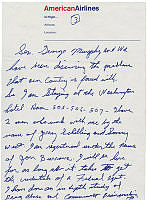 AmericanAirlines
In Flight...
Altitude;
Location;
Sen. George Murphy and We
have been discussing the problems
that our Country is faced with.
Sir I am Staying at the Washington
hotel Room 505-506-507- I have
2 men who work with me by the
name of Jerry Schilling and Sonny
West. I am registered under the name
of Jon Burrows. I will be here
for as long as it takes to get
the credentials of a Federal Agent.
I have done an in depth study of
Drug Abuse and Communist Brainwashing